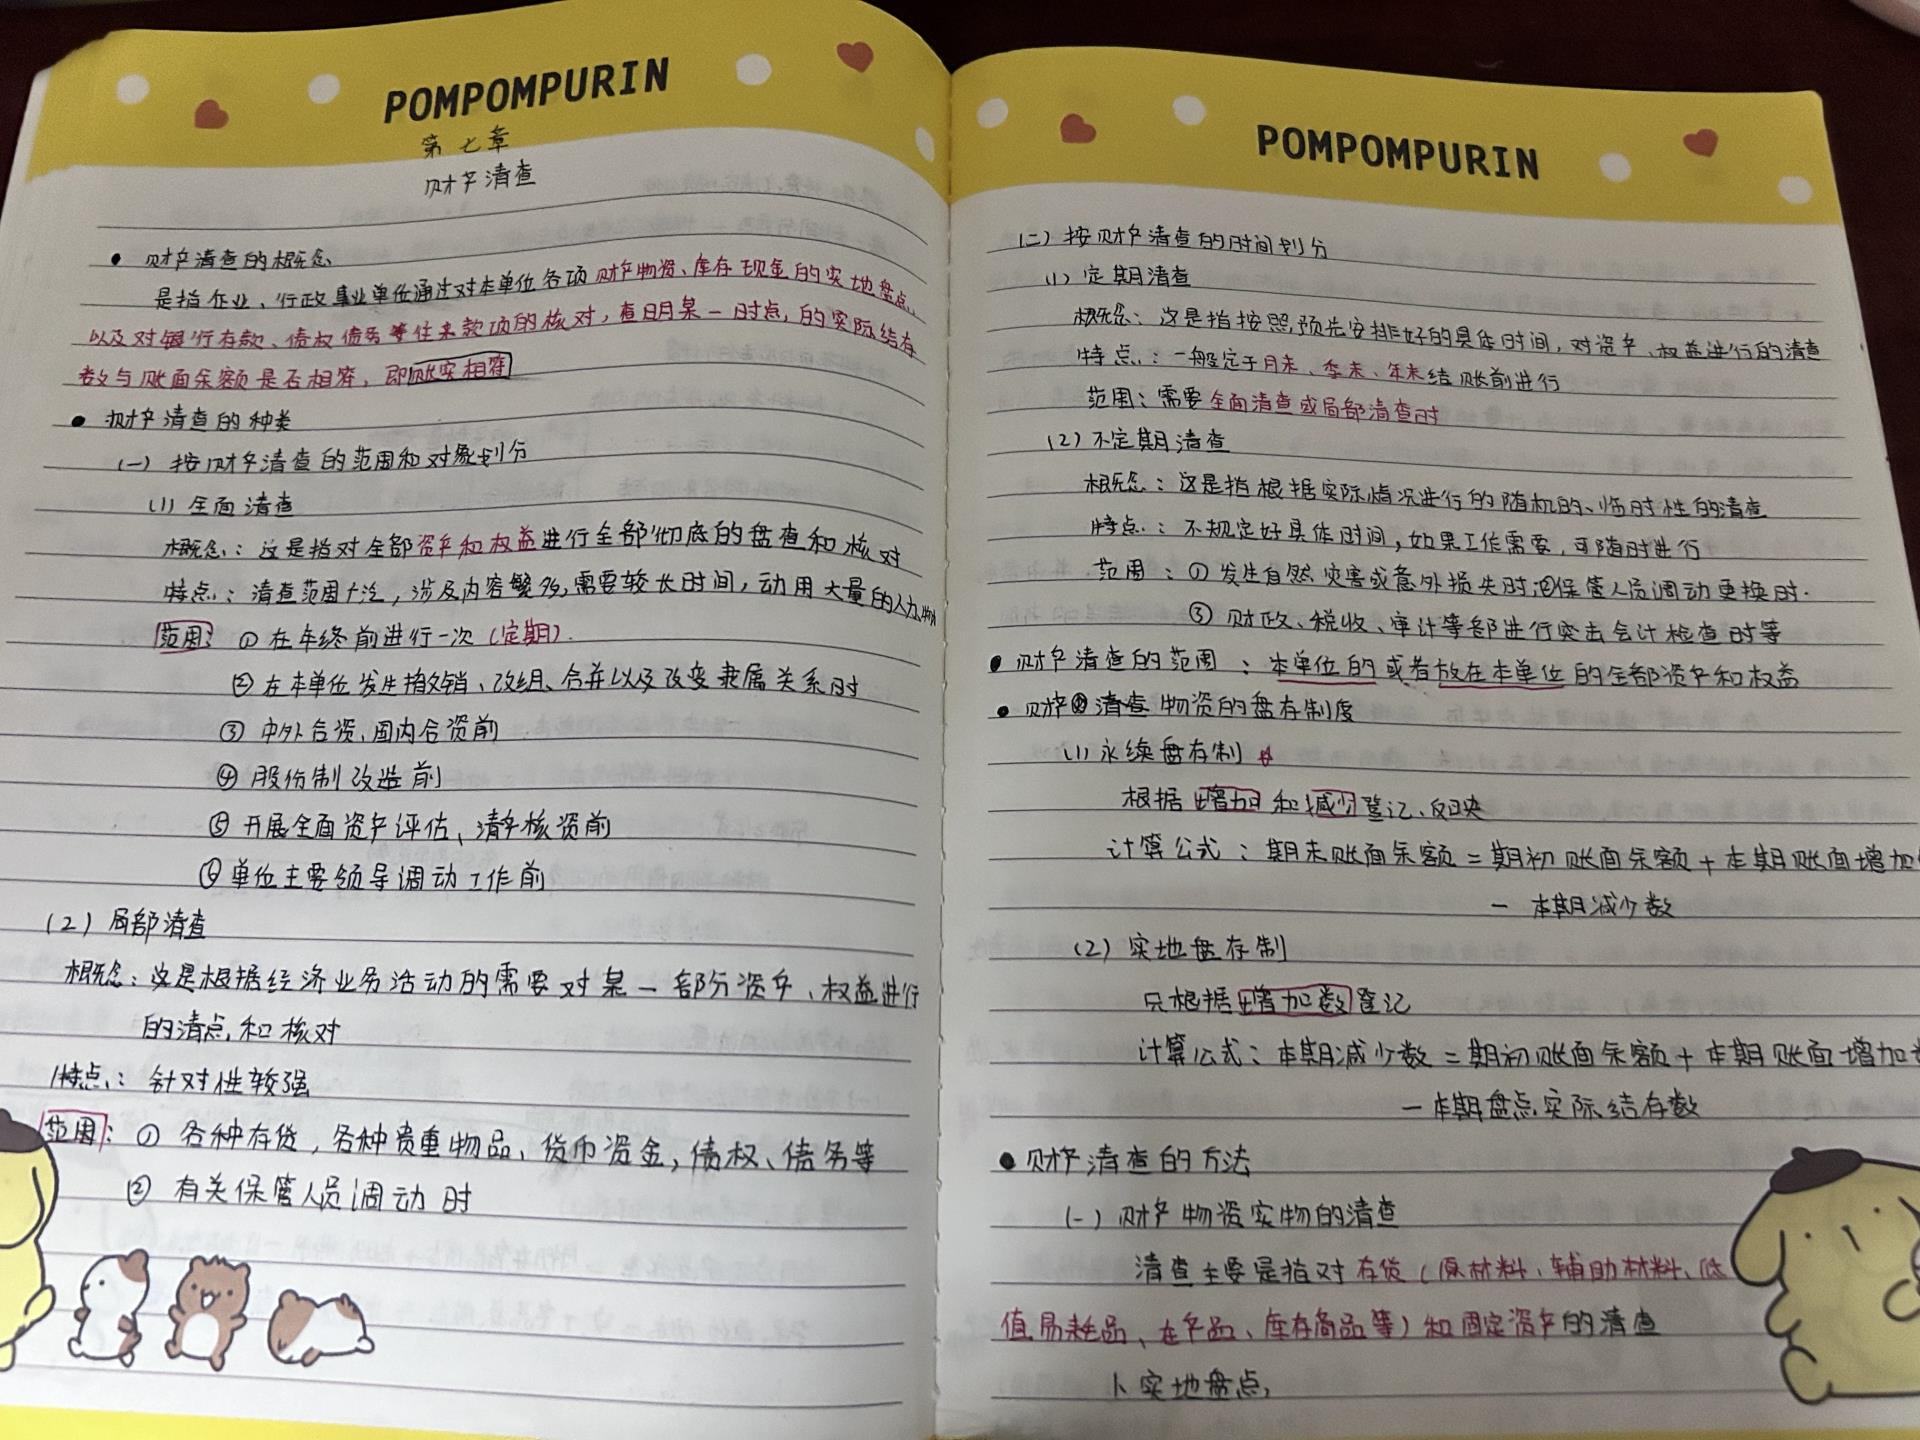 POMPOMPURIN
第七章
财产清查
• 财产清查的概念
是指企业、行政事业单位通过对本单位各项财产物资、库存现金的实地盘点,
以及对银行存款、债权债务等往来款项的核对,查明某一时点,的实际结存
数与账面余额是否相符,即账实相符
• 财产清查的种类
(一) 按财产清查的范围和对象划分
(1) 全面清查
概念:这是指对全部资产和权益进行全部彻底的盘查和核对
特点:清查范围广泛,涉及内容繁多,需要较长时间,动用大量的人力、物力
范围:① 在年终前进行一次(定期).
② 在本单位发生撤销、改组、合并以及改变隶属关系时
③ 中外合资、国内合资前
④ 股份制改造前
⑤ 开展全面资产评估、清产核资前
⑥ 单位主要领导调动工作前
(2) 局部清查
概念:这是根据经济业务活动的需要对某一部分资产、权益进行
的清点和核对
特点:针对性较强
范围:① 各种存货,各种贵重物品、货币资金,债权、债务等
② 有关保管人员调动时
POMPOMPURIN
(二) 按财产清查的时间划分
(1) 定期清查
概念:这是指按照预先安排好的具体时间,对资产、权益进行的清查
特点:一般定于月末、季末、年末结账前进行
范围:需要全面清查或局部清查时
(2) 不定期清查
概念:这是指根据实际情况进行的随机的、临时性的清查
特点:不规定好具体时间,如果工作需要,可随时进行
范围:① 发生自然灾害或意外损失时②保管人员调动更换时.
③ 财政、税收、审计等部进行突击会计检查时等
• 财产清查的范围:本单位的或者放在本单位的全部资产和权益
• 财产清查物资的盘存制度
(1) 永续盘存制 ☆
根据增加和减少登记、反映
计算公式:期末账面余额=期初账面余额+本期账面增加
- 本期减少数
(2) 实地盘存制
只根据增加数登记
计算公式:本期减少数=期初账面余额+本期账面增加
-本期盘点实际结存数
• 财产清查的方法
(一) 财产物资实物的清查
清查主要是指对存货(原材料、辅助材料、低
值易耗品、在产品、库存商品等)和固定资产的清查
1、实地盘点,